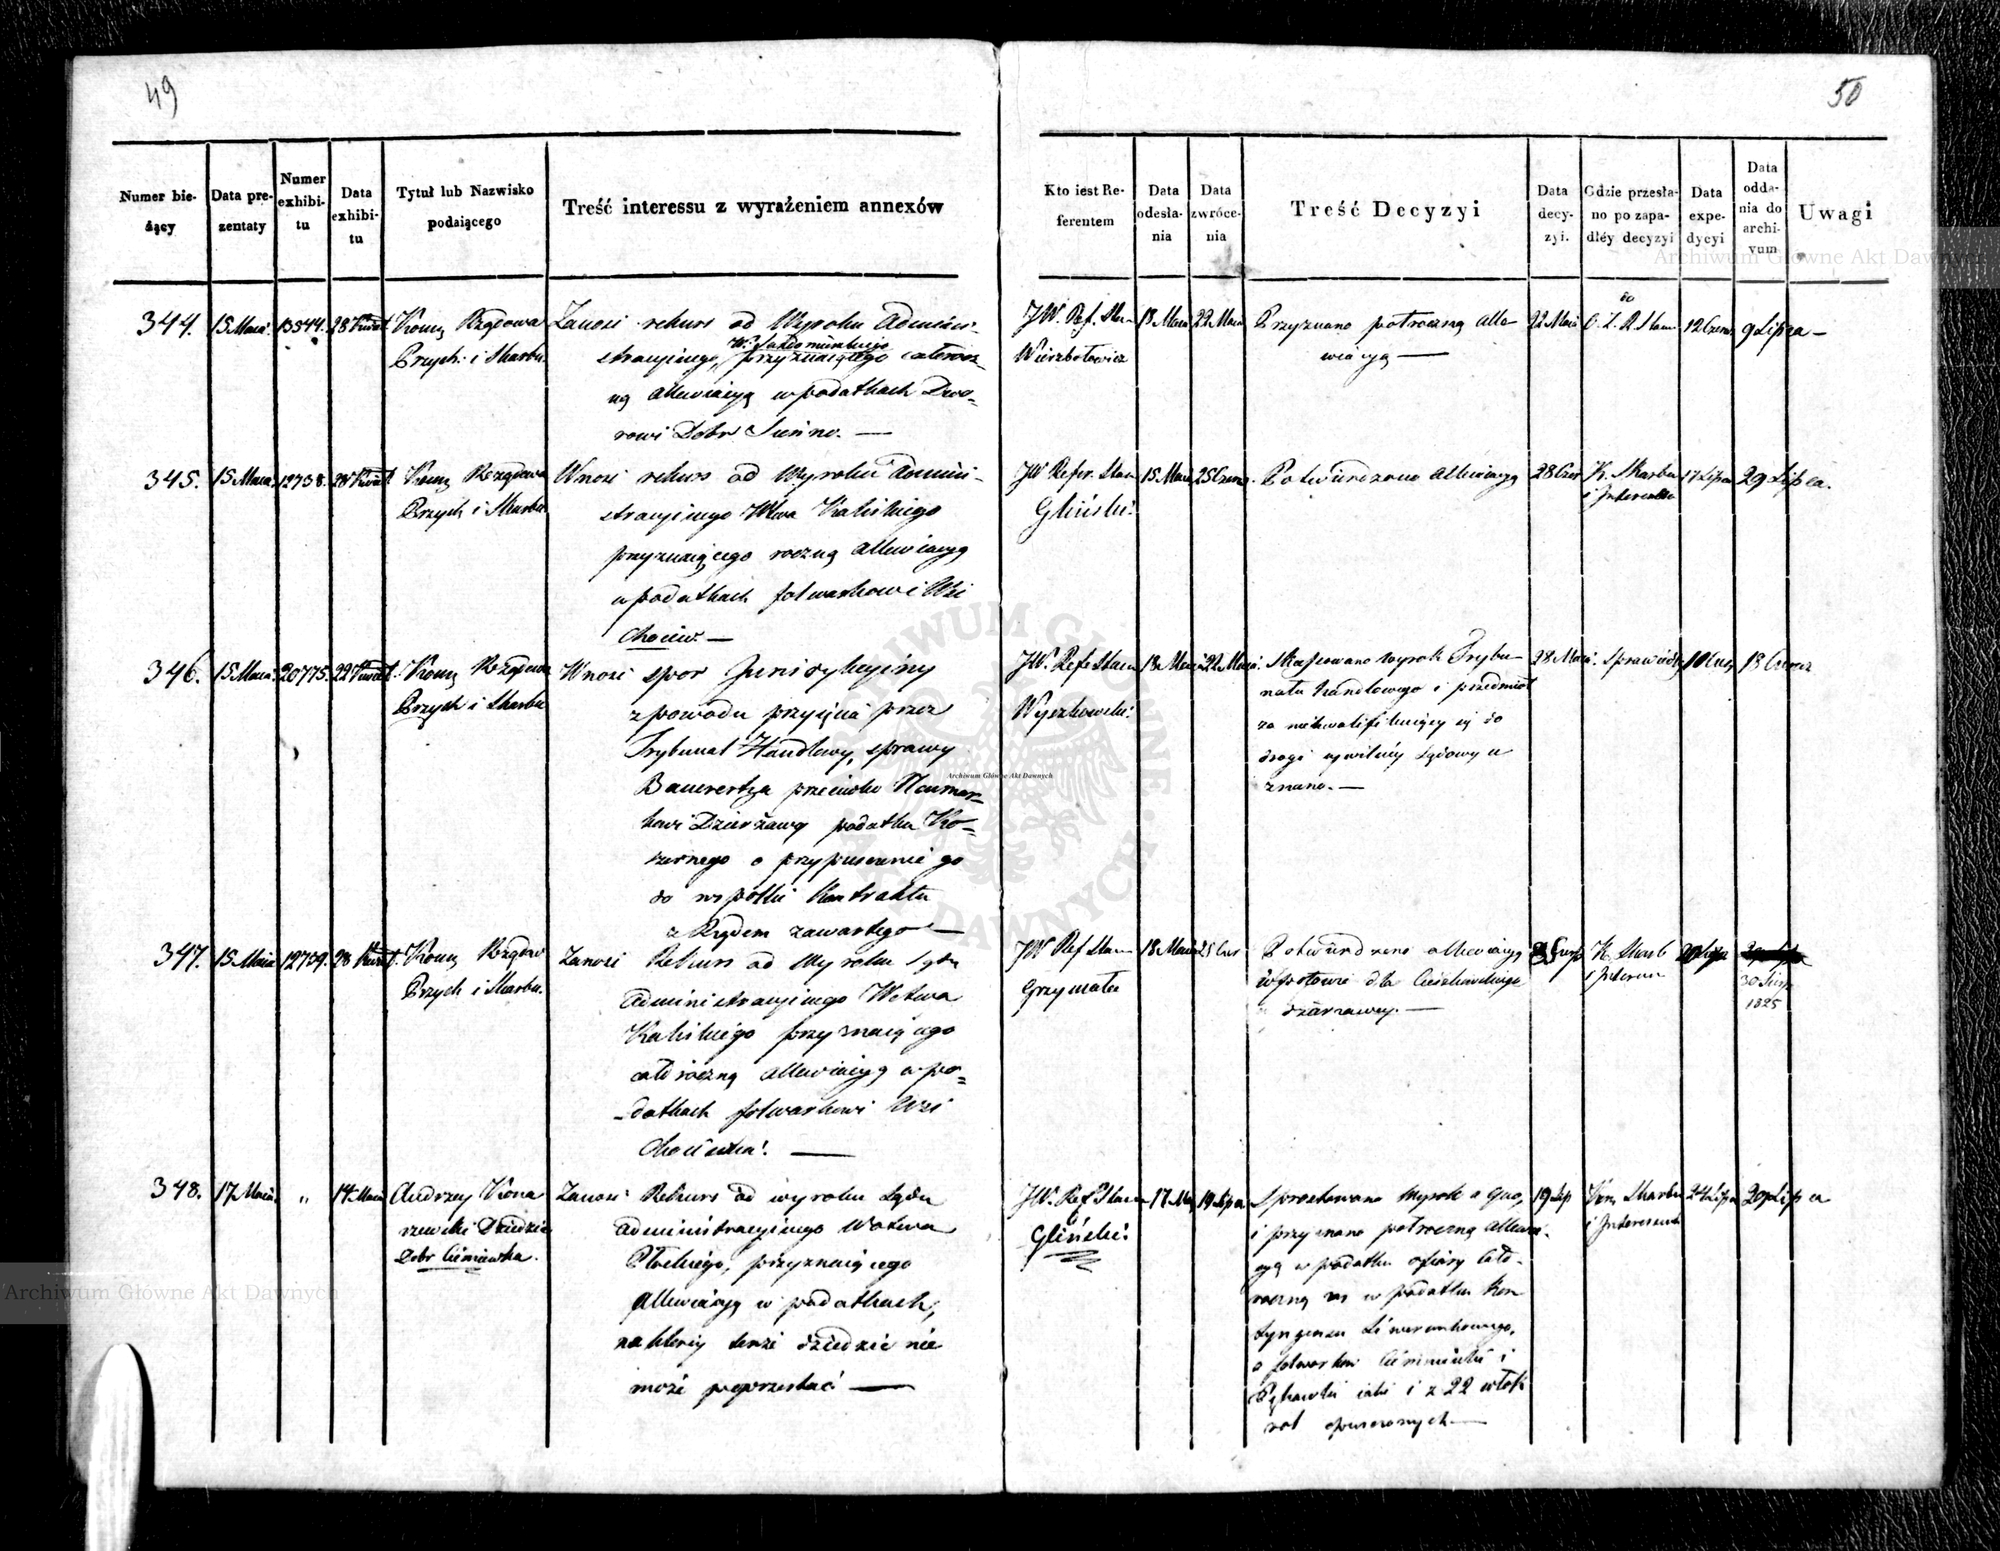 49
Numer bie-
żący
Data pre-
zentaty
Numer
exhibi-
tu
Data
exhibi-
tu
Tytuł lub Nazwisko
podaiącego
Treść interessu z wyrażeniem annexów
344.
15 Maia
13344.
28 Kwiet.
Komᵃ Rządowa
Przych. i Skarbu
Zanosi rekurs od Wyroku Admini-
stracyinego, W. Sandomirskiego
przyznaiącego całorocz-
ną allewiacyą w podatkach Dwo-
rowi Dobr Sienno. —
345.
15 Maia
12738.
28 Kwiet.
Komᵃ Rządowa
Przych i Skarbu
Wnosi rekurs od Wyroku Admini-
stracyinego Wtwa Kaliskiego
przyznaiącego roczną allewiacyą
w podatkach folwarkowi Wsi
Chociw. —
346.
15 Maia
20775.
22 Kwiet.
Komᵃ Rządowa
Przych i Skarbu
Wnosi spor Jurisdykcyiny
z powodu przyięcia przez
Trybunał Handlowy, sprawy
przeciwko Neumar-
kowi Dzierżawcy podatku Ko-
szernego o przypuszczenie go
do wspołki Kontraktu
z Rządem zawartego —
347.
15 Maia
12739.
28 Kwiet.
Komᵃ Rządow
Przych i Skarbu.
Zanosi Rekurs od Wyroku Sądu
Administracyinego Wotwa
Kaliskiego przyznaiącego
całoroczną allewiacyą w po-
datkach folwarkowi Wsi
—
348.
17 Maia
„
14 Maia
Andrzey Kona
rzewski Dziedzic
Dobr Ciemiewka.
Zanosi Rekurs od wyroku Sądu
Administracyinego Wotwa
Płockiego, przyznaiącego
Allewiacyą w podatkach,
na ktorey tenże dziedzic nie
może poprzestać —
50
Kto iest Re-
ferentem
Data
odesła-
nia
Data
zwróce-
nia
Treść Decyzyi
Data
decy-
zyi.
Gdzie przesła-
no po zapa-
dłéy decyzyi
Data
expe-
dycyi
Data
odda-
nia do
archi-
vum
Uwagi
JW. Ref. Stanu
Wierzbołowicz
18 Maia
22 Maia
Przyznano połroczną alle-
wiacyą —
22 Maia
do
12 Czerw
9 Lipca —
JW Refer. Stanu
Gliński
15 Maia
25 Czerw.
Potwierdzono allewiacyą
28 Czer
K. Skarbu
i Interessen
17 Lipca
29 Lipca.
JW. Ref Stanu
Wyczkowski
18 Maia
22 Maia
Skassowano wyrok Trybu-
nału handlowego i przedmiot
za niekwalifikuiący się do
drogi cywilney sądowey u
znano. —
28 Maia
Sprawiedl
10 Czer
18 Czerwca
JW Ref Stanu
Grzymała
18 Maia
25 Czer
Potwierdzono allewiacyą
w połowie dla
dzierzawcy. —
K. Skarb
i Interess
30 Sierp
1825
JW. Ref. Stanu
Gliński
17 Maj
19 Lipca
Sprostowano Wyrok a quo,
i przyznano połroczną Allewia-
cyą w podatku ofiary Cało-
roczną zas w podatku Kon
tyngensu Liwerunkowego,
z folwarkow Cieminiewki i
i z 22 włok
rol opuszczonych —
19 Lip
Kom Skarbu
i Interessent
24 Lipca
20 Lipca
Archiwum Główne Akt Dawnych
Archiwum Główne Akt Dawnych
Archiwum Główne Akt Dawnych
ARCHIWUM GŁÓWNE AKT DAWNYCH